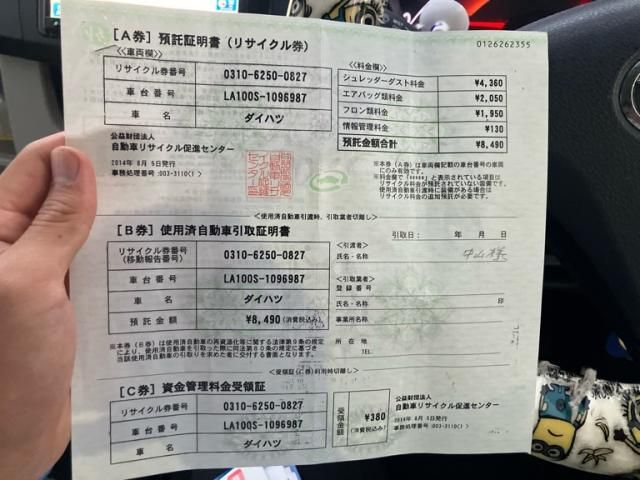 [A券] 預託証明書 (リサイクル券)
0126262355
<車両欄>
リサイクル券番号 0310-6250-0827
車台番号 LA100S-1096987
車名 ダイハツ
<料金欄>
シュレッダーダスト料金 ¥4,360
エアバッグ類料金 ¥2,050
フロン類料金 ¥1,950
情報管理料金 ¥130
預託金額合計 ¥8,490
公益財団法人
自動車リサイクル促進センター
2014年 8月 5日発行
事務処理番号:003-3110(1)
※本券(A券)は車両欄記載の車台番号の車両
にのみ有効です。
※料金欄で「*****」と表示されている項目は
リサイクル料金が預託されていない装備です。
使用済自動車引渡時に装備がある場合は
リサイクル料金の追加預託が必要です。
<使用済自動車引渡時、引取業者切離し>
[B券] 使用済自動車引取証明書
引取日: 年 月 日
リサイクル券番号
(移動報告番号) 0310-6250-0827
車台番号 LA100S-1096987
車名 ダイハツ
預託金額 ¥8,490(消費税込み)
<引渡者>
氏名・名称 中山様
<引取業者>
登録番号
氏名・名称 印
事業所名
所在地
TEL.
※本券(B券)は、使用済自動車の再資源化等に関する法律第9条の規定
により、使用済自動車を引取った際に同法第80条の規定に基づき
当該使用済自動車の引取りを求めた者に交付する書面となります。
<受領証(C券)利用時切離し>
[C券] 資金管理料金受領証
リサイクル券番号 0310-6250-0827
車台番号 LA100S-1096987
車名 ダイハツ
受領金額 ¥380
(消費税込み)
公益財団法人
自動車リサイクル促進センター
2014年 8月 5日発行
事務処理番号:003-3110(1)